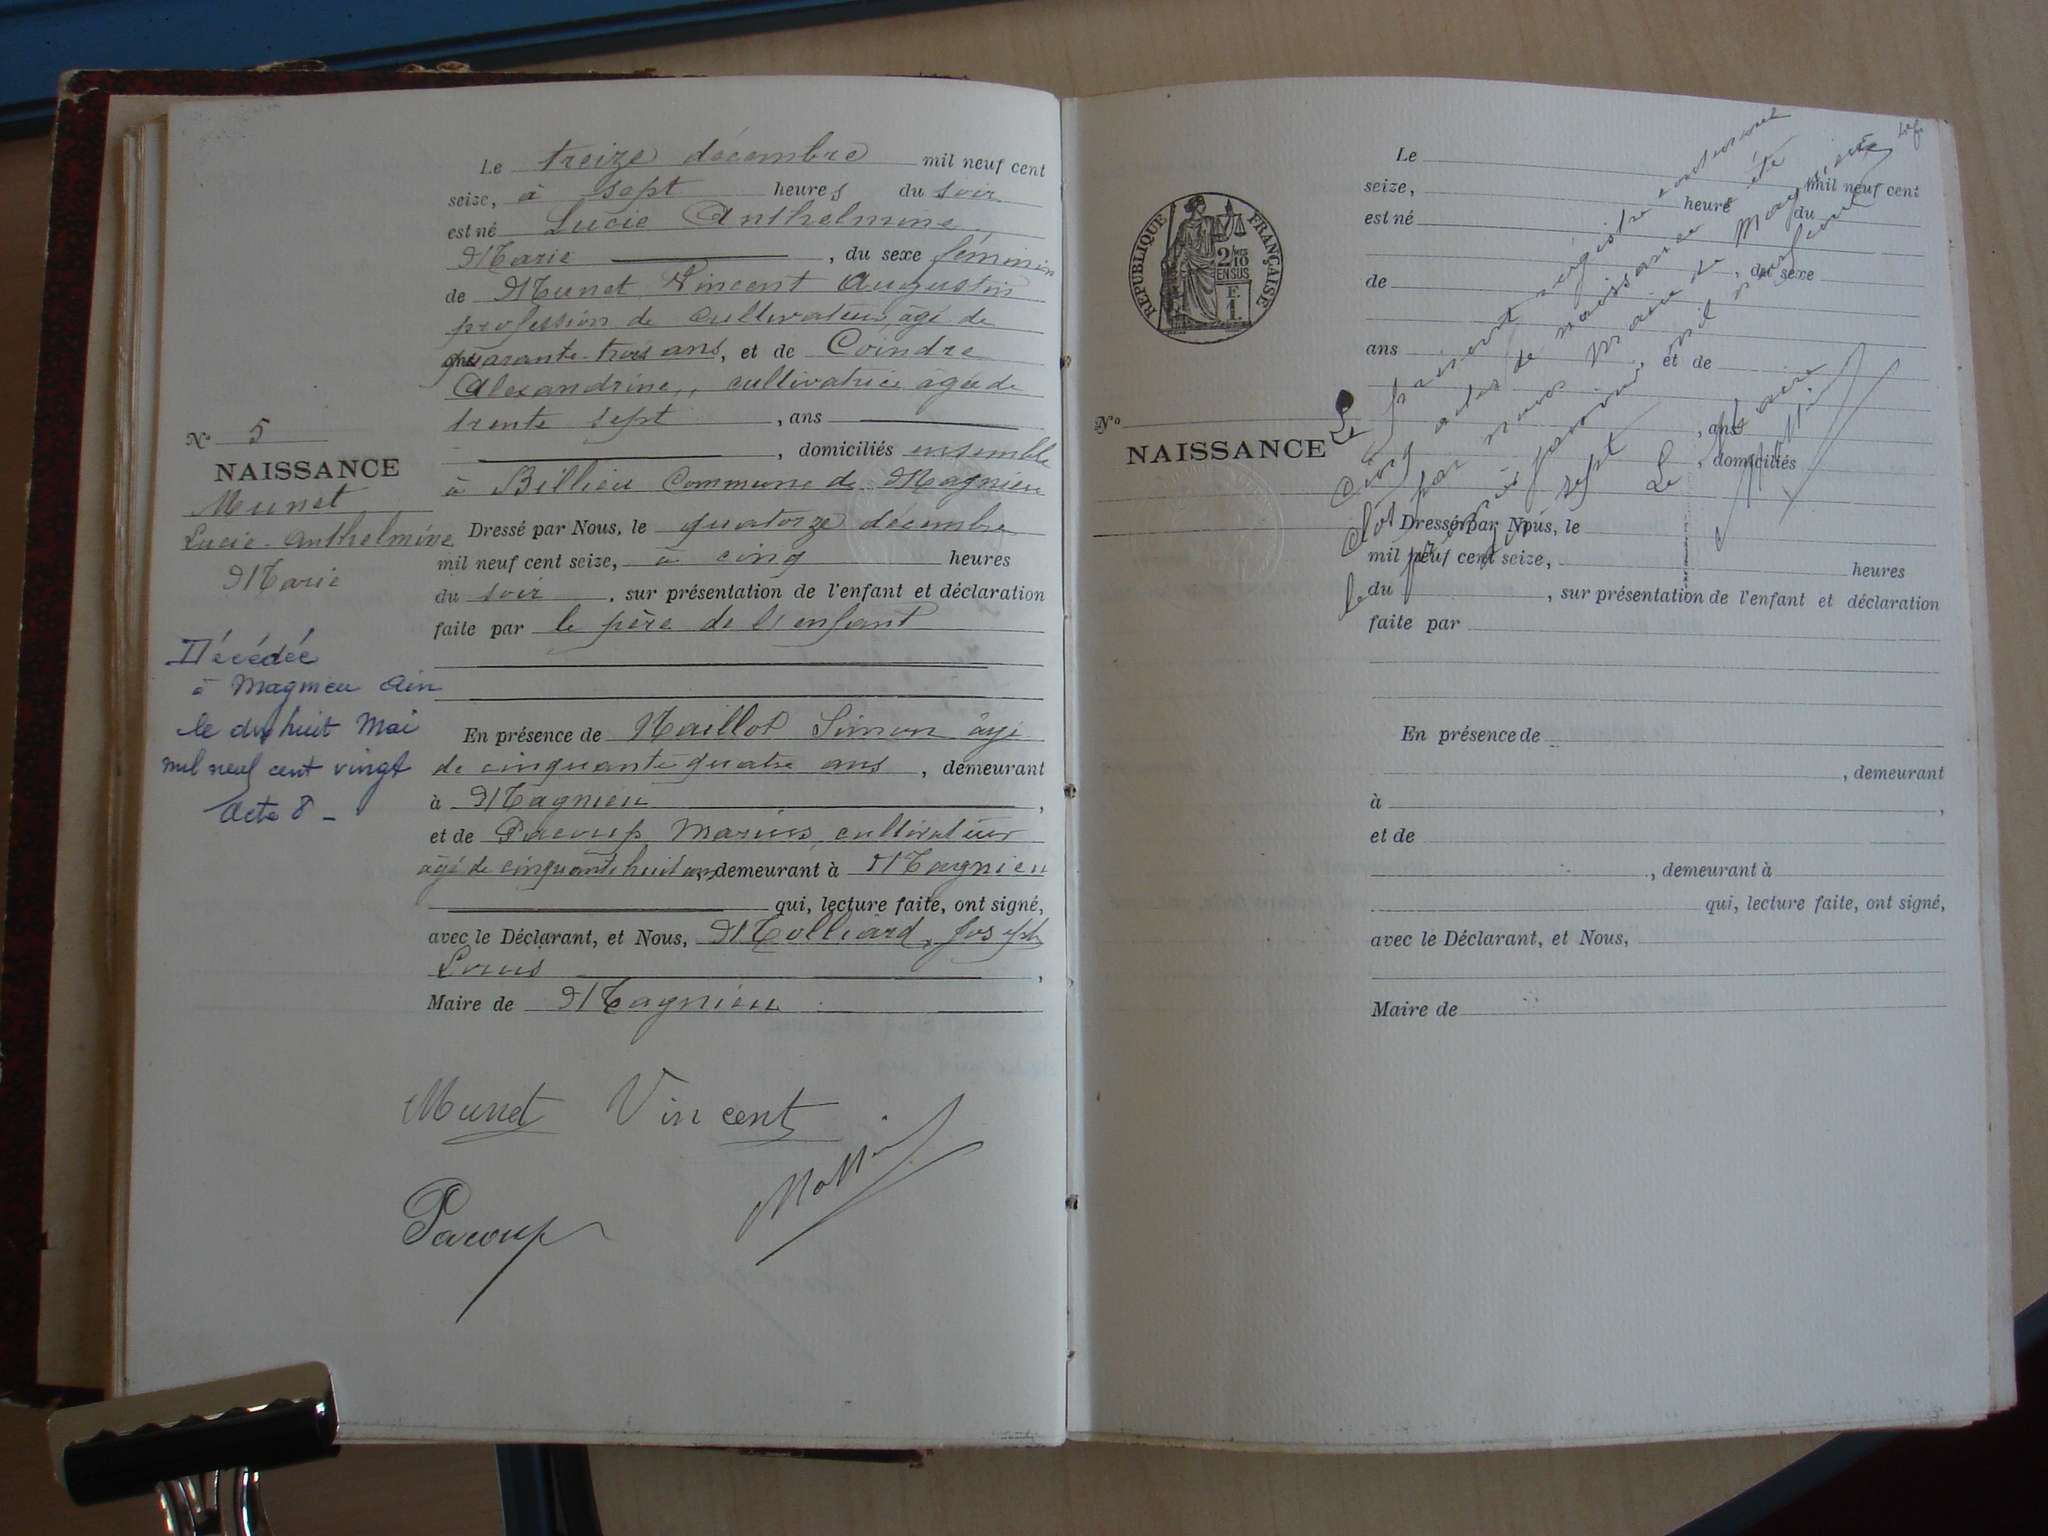 Le treize décembre mil neuf cent
seize, à sept heures du soir
est né Lucie Anthelmine,
Marie, du sexe féminin
de Munet Vincent Augustin
profession de cultivateur, âgé de
quarante-trois ans, et de Coindre
Alexandrine, cultivatrice âgée de
trente sept, ans
, domiciliés ensemble
à Billieu Commune de Magnieu
Dressé par Nous, le quatorze décembre
mil neuf cent seize, à cinq heures
du soir, sur présentation de l'enfant et déclaration
faite par le père de l'enfant
En présence de Maillot Simon âgé
de cinquante quatre ans, demeurant
à Magnieu,
et de Pacoup Marius, cultivateur
âgé de cinquante huit ans, demeurant à Magnieu
qui, lecture faite, ont signé,
avec le Déclarant, et Nous, Molliard, Joseph
Louis,
Maire de Magnieu
No 5
NAISSANCE
Munet
Lucie-Anthelmine
Marie
Décédée
à Magnieu Ain
le dix huit Mai
mil neuf cent vingt
Acte 8 -
Munet Vincent
Pacoup
RÉPUBLIQUE FRANÇAISE
2/10
EN SUS
F.
1.
No
NAISSANCE
Le
mil neuf cent
seize, heure du
est né
, du sexe
de
ans, et de
, ans
, domiciliés
Dressé par Nous, le
mil neuf cent seize, heures
du, sur présentation de l'enfant et déclaration
faite par
En présence de
, demeurant
à,
et de
, demeurant à
qui, lecture faite, ont signé,
avec le Déclarant, et Nous,
Maire de
Le présent régistre contenant
cinq actes de naissance a été
clos par nous Maire de Magnieu
le janvier mil neuf cent
sept
Le Maire